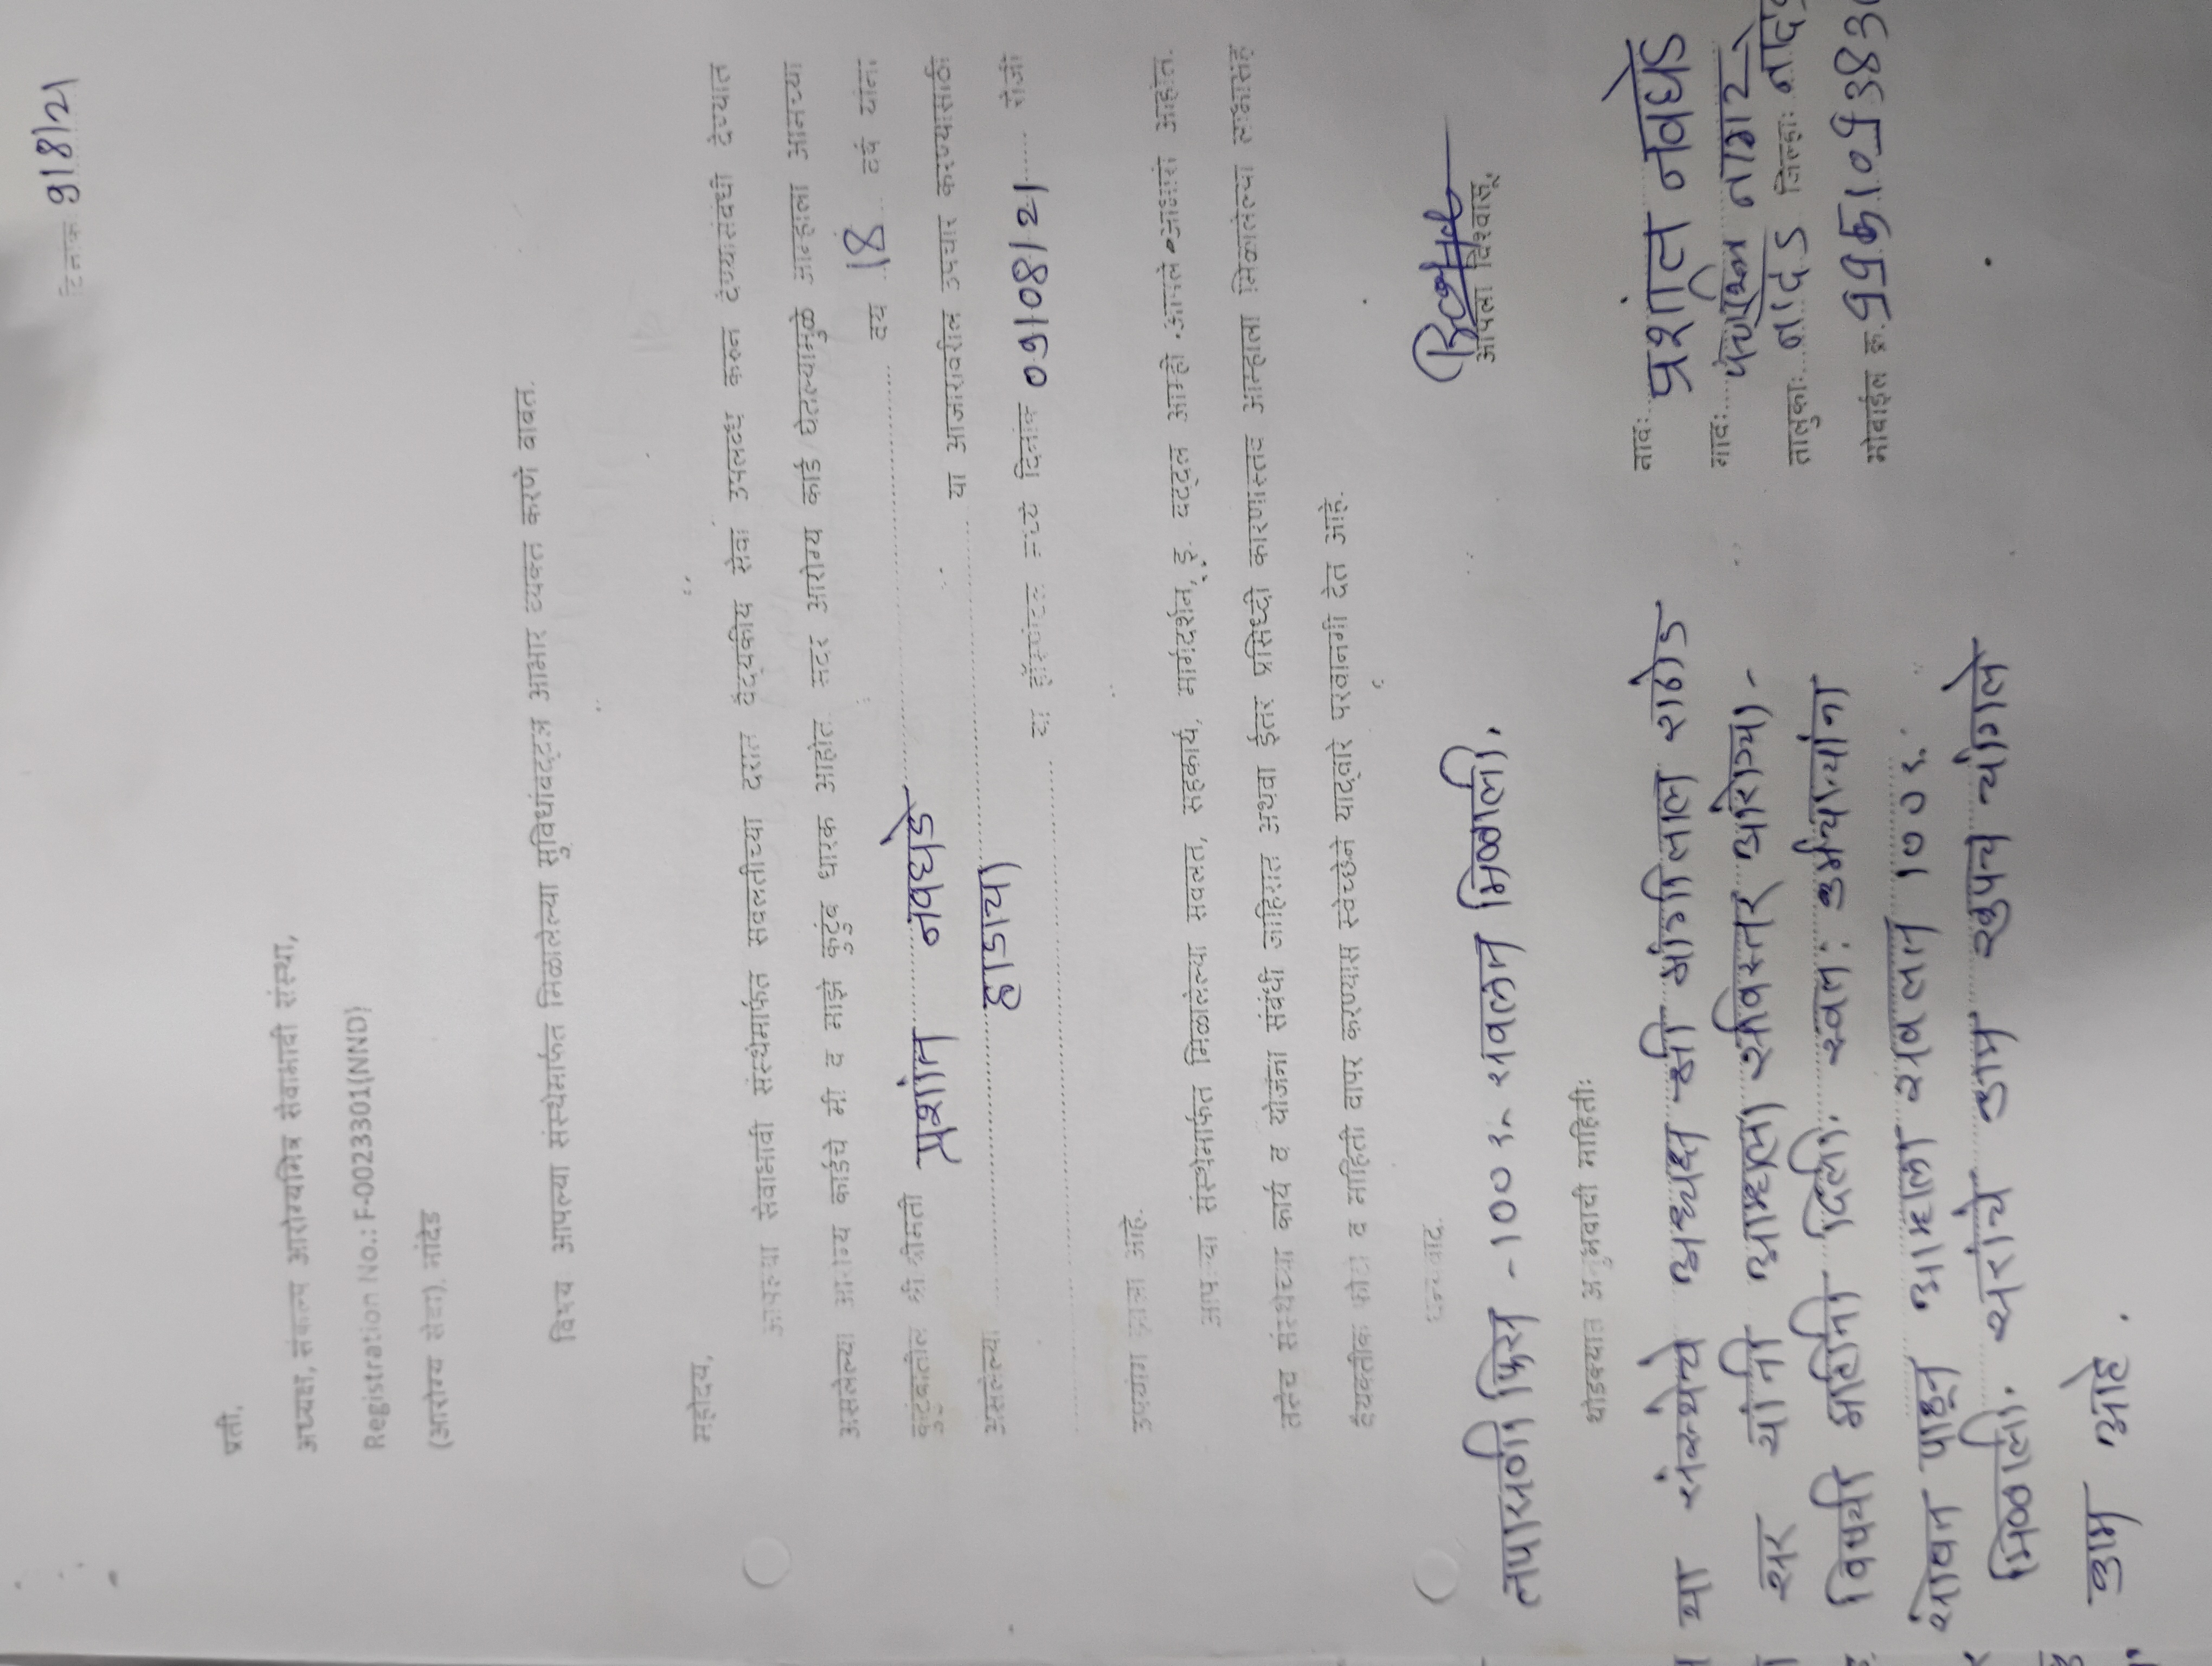 दिनांक: 9/8/21
प्रती,
अध्यक्ष, संकल्प आरोग्यमित्र सेवाभावी संस्था,
Registration No.: F-0023301(NND)
(आरोग्य सेवा), नांदेड
विषय आपल्या संस्थेमार्फत मिळालेल्या सुविधांबद्दल आभार व्यक्त करणे बाबत.
महोदय,
आपल्या सेवाभावी संस्थेमार्फत सवलतीच्या दरात वैद्यकीय सेवा उपलब्ध करुन देण्यासंबंधी देण्यात
असलेल्या आरोग्य कार्डचे मी व माझे कुटुंब धारक आहोत. सदर आरोग्य कार्ड घेतल्यामुळे आम्हाला आमच्या
कुटुंबातील श्री/श्रीमती प्रशांत नवघडे वय 18 वर्ष यांना
असलेल्या हाडाचा या आजारावरील उपचार करण्यासाठी
या हॉस्पीटल मध्ये दिनांक 09/08/21 रोजी
उपयोग झाला आहे.
आपल्या संस्थेमार्फत मिळालेल्या सवलत, सहकार्य, मार्गदर्शन, इ. बद्दल आम्ही आपले आभारी आहोत.
तसेच संस्थेच्या कार्य व योजना संबंधी जाहिरात अथवा ईतर प्रसिध्दी कारणास्तव आम्हाला मिळालेल्या लाभासह
वैयक्तीक फोटो व माहिती वापर करण्यास स्वेच्छेने याद्वारे परवानगी देत आहे.
धन्यवाद.
आपला विश्वासू,
तपासणी फिस - 100 रु. सवलत मिळाली.
थोडक्यात अनुभवाची माहिती:
नाव: प्रशांत नवघडे
गाव: नगर
तालुका: नांदेड जिल्हा:
मोबाईल क्र.
या संस्थेचे अध्यक्ष श्री राठोड
सर यांनी आम्हाला सविस्तर आरोग्या-
विषयी माहिती दिली. स्वत:
सोबत येऊन आम्हाला सवलत 170 रु.
मिळाली. सरांचे काम खुपच चांगले
काम आहे.